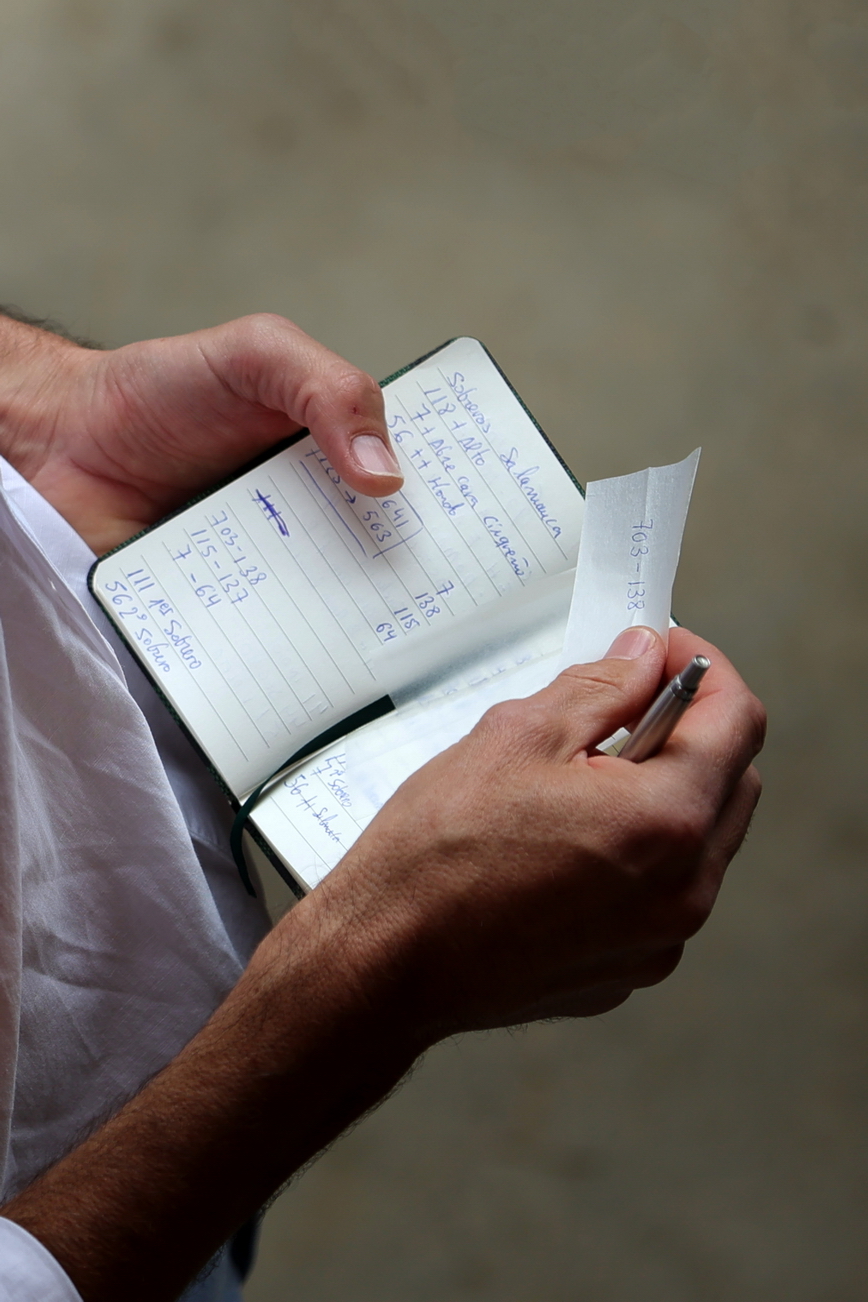 Sobreros Salamanca
118 + Alto
7 + Abre cara Cinqueño
56 ++ Hondo
641
→ 563
7
138
115
64
703-138
115-137
7-64
111 1er Sobrero
56 2º Sobrero
703-138
1er Sobrero
56 ++